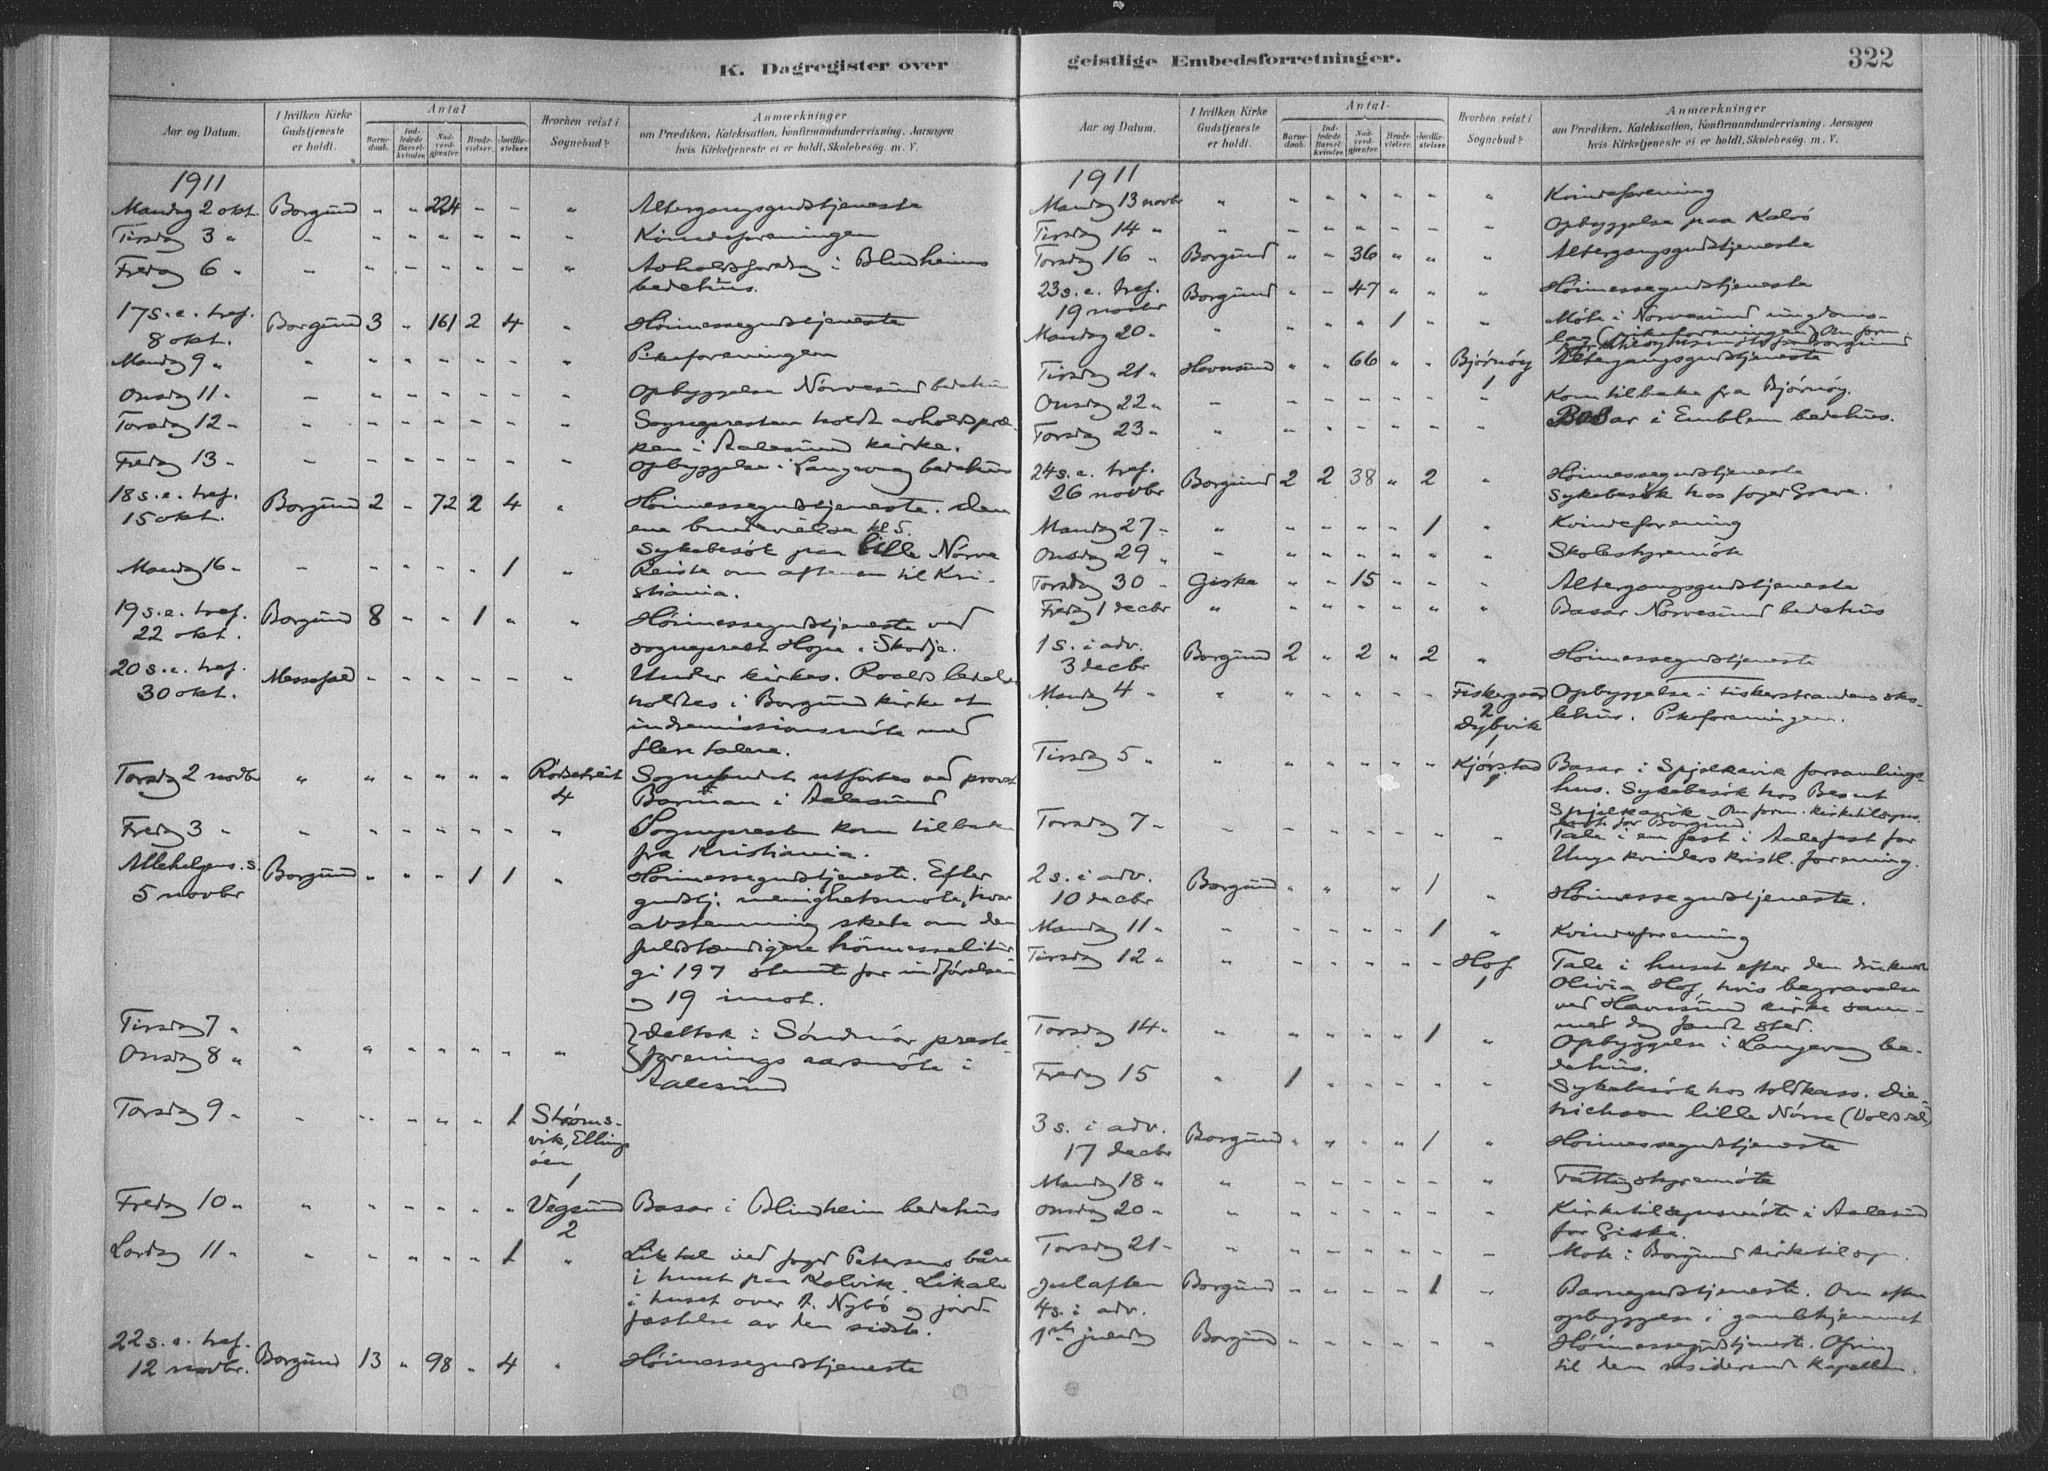 K. Dagregister over
Aar og Datum.
I hvilken Kirke Gudstjeneste er holdt.
Antal
Barnedaab.
Indledede Barselkvinder.
Nadverdgjæster.
Brudevielser.
Jordfæstelser.
Hvorhen reist i Sognebud?
Anmærkninger
om Prædiken, Katekisation, Konfirmandundervisning, Aarsagen
hvis Kirketjeneste ei er holdt, Skolebesøg m. V.
1911
Mandag 2 okt. Borgund " " 224 - - " Altergangsgudstjeneste
Tirsdag 3 " - " " " " " " Kvindeforeningen
Fredag 6 " - - - - - - " Avholdsforedrag i Blindheims
bedehus.
17 s. e. tref.
8 okt. Borgund 3 " 161 2 4 " Høimessegudstjeneste
Mandag 9 " - - - - - - " Pikeforeningen
Onsdag 11 - - - - - - - - Opbyggelse Nørvesund bedehus
Torsdag 12 - - - - - - - - Sognepresten holdt avholdspræ-
ken i Aalesund kirke.
Fredag 13 - - - - - - - - Opbyggelse i Langevaag bedehus
18 s. e. tref.
15 okt. Borgund 2 - 72 2 4 " Høimessegudstjeneste. Den
ene brudevielse kl 5.
Sykebesøk paa lille Nørve
Mandag 16 - - - - - - 1 " Reiste om aftenen til Kri-
stiania.
19 s. e. tref.
22 okt. Borgund 8 - - 1 " " Høimessegudstjeneste ved
sogneprest Hope i Skodje.
20 s. e. tref.
30 okt. Messefald - - - - - " Under kirkes. Roalds ledelse
holdtes i Borgund kirke et
indremissionsmøte med
flere talere.
Torsdag 2 novbr " " " " " " Rødsetreit Sognebudet utførtes ved provst
4 Barman i Aalesund
Fredag 3 " " - - - - - " Sognepresten kom tilbake
fra Kristiania.
Allehelgens. s.
5 novbr Borgund " " " 1 1 " Høimessegudstjeneste. Efter
gudstj. menighetsmøte, hvor
avstemning skete om den
fuldstændigere høimesselitur-
gi 197 stemte for indførelsen
og 19 imot.
Tirsdag 7 "
Onsdag 8 " " " " " " " " Deltok i Søndmør preste-
forenings aarsmøte i
Aalesund
Torsdag 9 " - - - " " 1 Strøms-
vik, Ellings
øen
1
Fredag 10 " " " " " " " Vegsund Basar i Blindheim bedehus
2
Lørdag 11 " " " " " " 1 " Liktal ved foged Petersens båre
i huset paa Kalvik. Liktale
i huset over A. Nybø og jord-
fæstelse av den sidste.
22 s. e. tref.
12 novbr. Borgund 13 " 98 " 4 " Høimessegudstjeneste
geistlige Embedsforretninger.
322
Aar og Datum.
I hvilken Kirke Gudstjeneste er holdt.
Antal
Barnedaab.
Indledede Barselkvinder.
Nadverdgjæster.
Brudevielser.
Jordfæstelser.
Hvorhen reist i Sognebud?
Anmærkninger
om Prædiken, Katekisation, Konfirmandundervisning, Aarsagen
hvis Kirketjeneste ei er holdt, Skolebesøg m. V.
1911
Mandag 13 novbr " " " " " " " Kvindeforening
Tirsdag 14 " " - - - - - " Opbyggelse paa Kalvø
Torsdag 16 " Borgund " " 36 " " " Altergangsgudstjeneste
23 s. e. tref.
19 novbr Borgund " - 47 " " " Høimessegudstjeneste
Mandag 20 - " " " " 1 " " Møte i Nørvesund ungdoms-
lag (pikeforeningen) Om form.
kirketilsynsmøte for Borgund
Tirsdag 21 " Havnsund " " 66 " " Bjørnøy Altergangsgudstjeneste
1
Onsdag 22 " - - - - - - " Kom tilbake fra Bjørnøy.
Torsdag 23 - " - - - - - - Basar i Emblem bedehus.
24 s. e. tref.
26 novbr Borgund 2 2 38 " 2 " Høimessegudstjeneste
Sykebesøk hos foged Greve.
Mandag 27 - " " " " " 1 " Kvindeforening
Onsdag 29 " - " " " " " " Skolestyremøte
Torsdag 30 - Giske " " 15 - - " Altergangsgudstjeneste
Fredag 1 decbr " " " " " " " Basar Nørvesund bedehus
1 s. i adv.
3 decbr Borgund 2 " 2 " 2 " Høimessegudstjeneste
Mandag 4 " " " - - - - Fiskergaard Opbyggelse i Fiskerstrandens sko-
2 lehus. Pikeforeningen.
Dybvik
1
Tirsdag 5 " " " " " " " Kjørstad Basar i Spjelkavik forsamlings-
1 hus. Sykebesøk hos Berent
Spjelkavik. Om form. kirketilsyns-
møte for Borgund
Torsdag 7 - - - - - - - - Tale i en fest i Aalesund for
Unge kvinders kristl. forening.
2 s. i adv.
10 decbr Borgund " " " 1 " Høimessegudstjeneste.
Mandag 11 - " - - - - 1 " Kvindeforening
Tirsdag 12 " " - - - - - Hof Tale i huset efter den druknede
1 Olivia Hof, hvis begravelse
ved Havnsund kirke sam-
me dag fandt sted.
Torsdag 14 - " " " " " 1 " Opbyggelse i Langevaag be-
dehus.
Fredag 15 " 1 - - - - " Sykebesøk hos toldkass. Die-
trichson lille Nørve
3 s. i adv.
17 decbr Borgund " " " " 1 " Høimessegudstjeneste
Mandag 18 " " - - - - - " Fattigstyremøte
Onsdag 20 " - - - - - - " Kirketilsynsmøte i Aalesund
for Giske.
Torsdag 21 - " - - - - - - Møte i Borgund kirketilsyn.
Julaften Borgund " - - - 1 " Barnegudstjeneste. Om efterm.
4 s. i adv. opbyggelse i gamlehjemmet
1ste juledag Borgund - - - - - - Høimessegudstjeneste. Ofring
til den residerende kapellan.